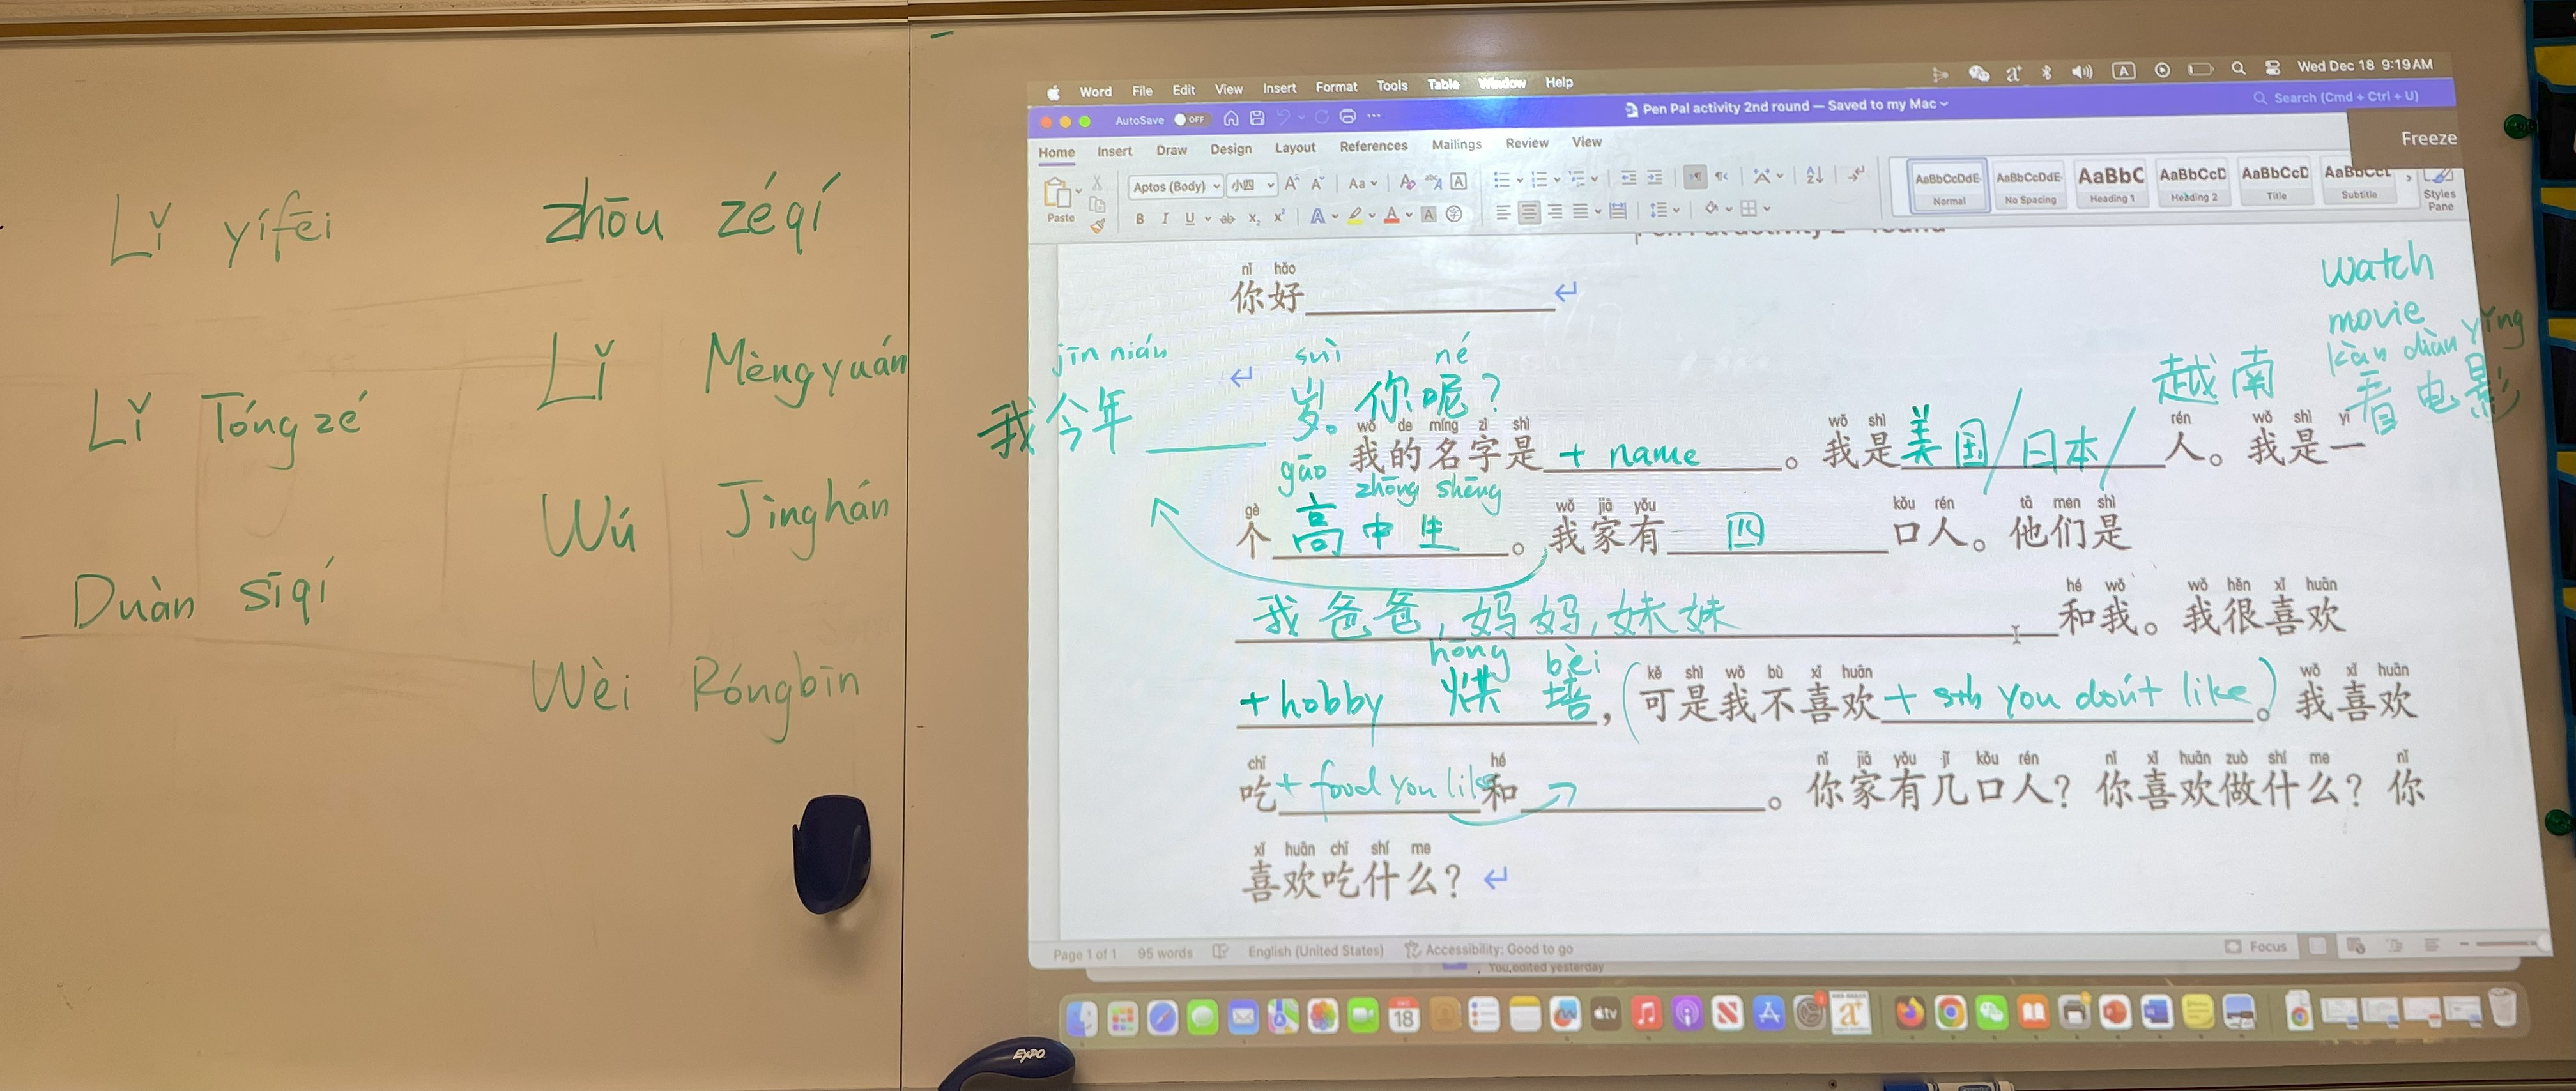 Lǐ yífēi
zhōu zéqí
Lǐ Mèngyuán
Lǐ Tóngzé
Wú Jìnghán
Duàn sīqí
Wèi Róngbīn
Word File Edit View Insert Format Tools Table Window Help
Wed Dec 18 9:19 AM
AutoSave OFF
Pen Pal activity 2nd round — Saved to my Mac
Search (Cmd + Ctrl + U)
Freeze
Home Insert Draw Design Layout References Mailings Review View
Paste
Aptos (Body) 小四
AaBbCcDdE AaBbCcDdE AaBbC AaBbCcD AaBbCcD AaBbCcL
Normal No Spacing Heading 1 Heading 2 Title Subtitle
Styles Pane
nǐ hǎo
你好
watch
movie
kàn diàn yǐng
看电影
jīn nián suì né
我今年 岁。你呢?
越南
wǒ de míng zì shì wǒ shì rén wǒ shì yí
我的名字是 + name 。我是美国/日本/ 人。我是一
gāo zhōng shēng
gè wǒ jiā yǒu kǒu rén tā men shì
个高中生。我家有 四 口人。他们是
hé wǒ wǒ hěn xǐ huān
我爸爸,妈妈,妹妹 和我。我很喜欢
hōng bèi
kě shì wǒ bù xǐ huān wǒ xǐ huān
+ hobby 烘培,(可是我不喜欢 + sth you don't like)。我喜欢
chī hé nǐ jiā yǒu jǐ kǒu rén nǐ xǐ huān zuò shí me nǐ
吃 + food you like 和 。你家有几口人?你喜欢做什么?你
xǐ huān chī shí me
喜欢吃什么?
Page 1 of 1 95 words English (United States) Accessibility: Good to go
Focus
You edited yesterday
18
tv
EXPO